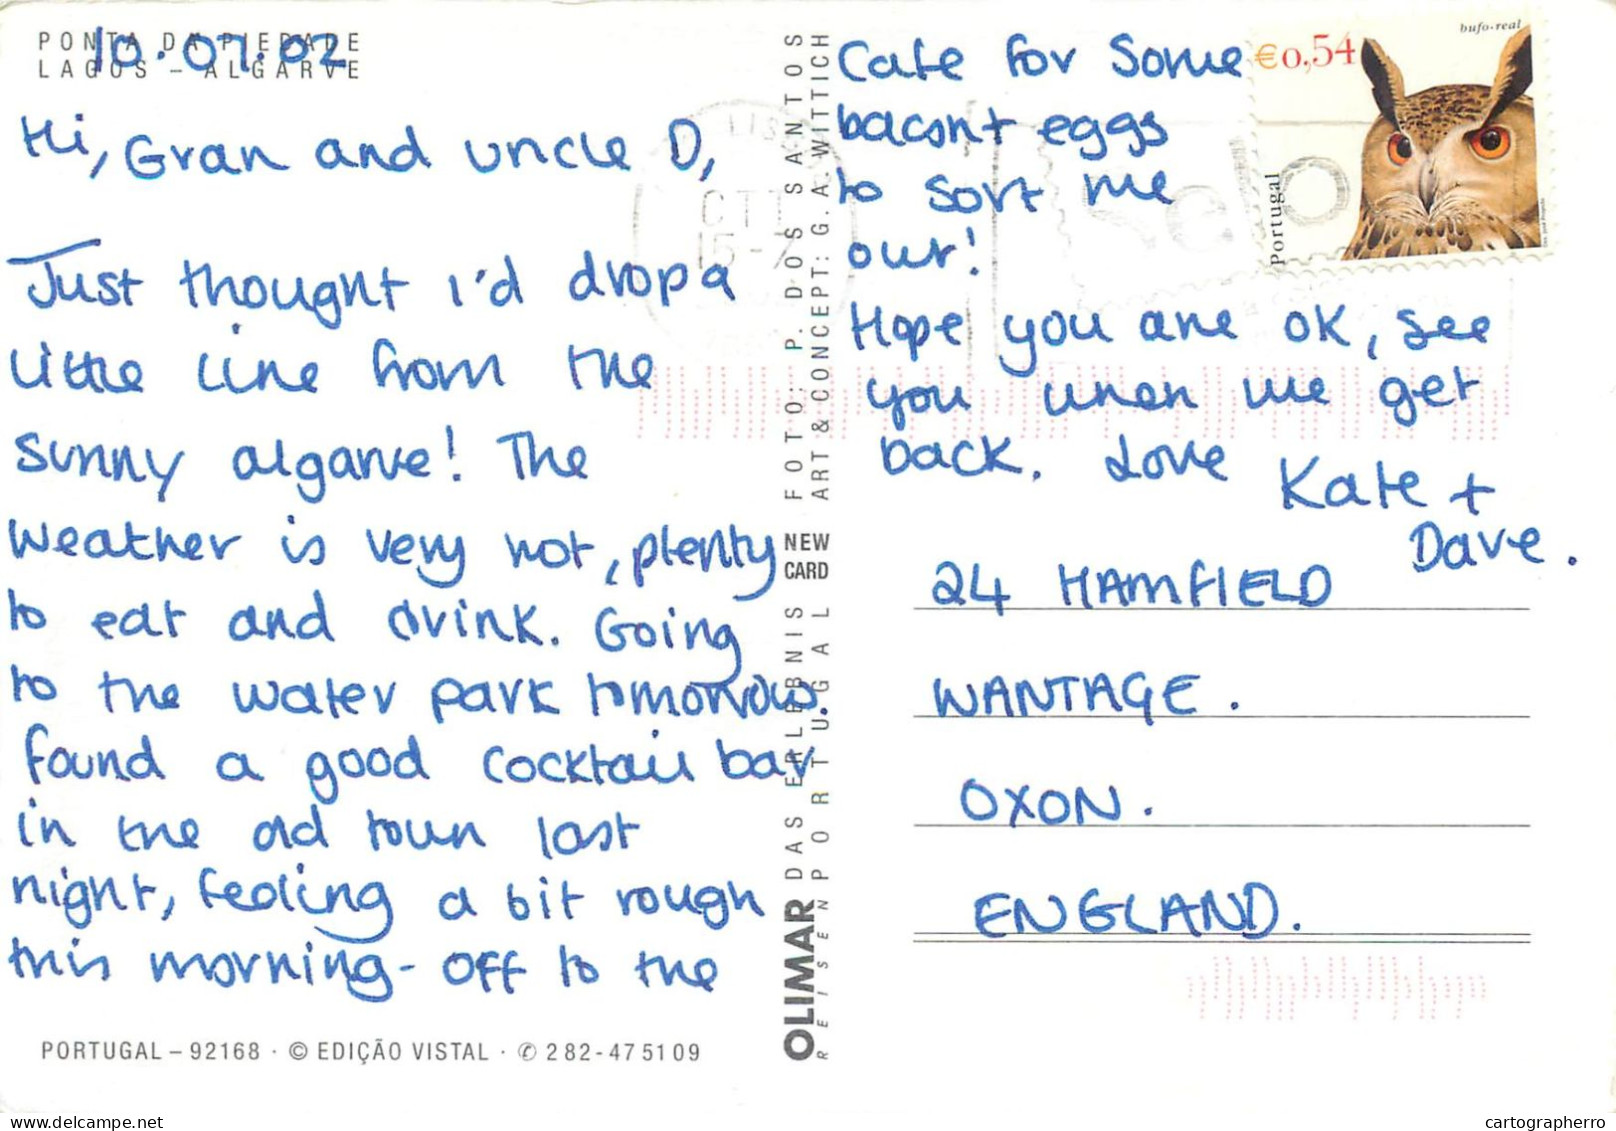 PONTA DA PIEDADE
LAGOS – ALGARVE
10.07.02
Hi, Gran and uncle D,
Just thought I'd drop a
little line from the
sunny algarve! The
weather is very hot, plenty
to eat and drink. Going
to the water park tomorrow.
found a good cocktail bar
in the old town last
night, feeling a bit rough
this morning - off to the
PORTUGAL – 92168 · © EDIÇÃO VISTAL · ✆ 282-475109
FOTO: P. DOS SANTOS
ART & CONCEPT: G. A. WITTICH
NEW
CARD
DAS ERLEBNIS
PORTUGAL
OLIMAR
REISEN
cafe for some
bacon + eggs
to sort me
out!
Hope you are ok, see
you when we get
back. Love Kate +
Dave.
bufo-real
€0,54
Portugal
CTT
15-7
24 HAMFIELD
WANTAGE.
OXON.
ENGLAND.
cartographerro